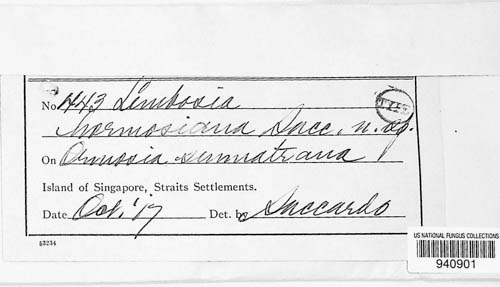 No. 443 Limbosia
hormosiana Sacc. n. sp.
On Ormosia sumatrana
Island of Singapore, Straits Settlements.
Date Oct. '17 Det. by Saccardo
53234
US NATIONAL FUNGUS COLLECTIONS
940901